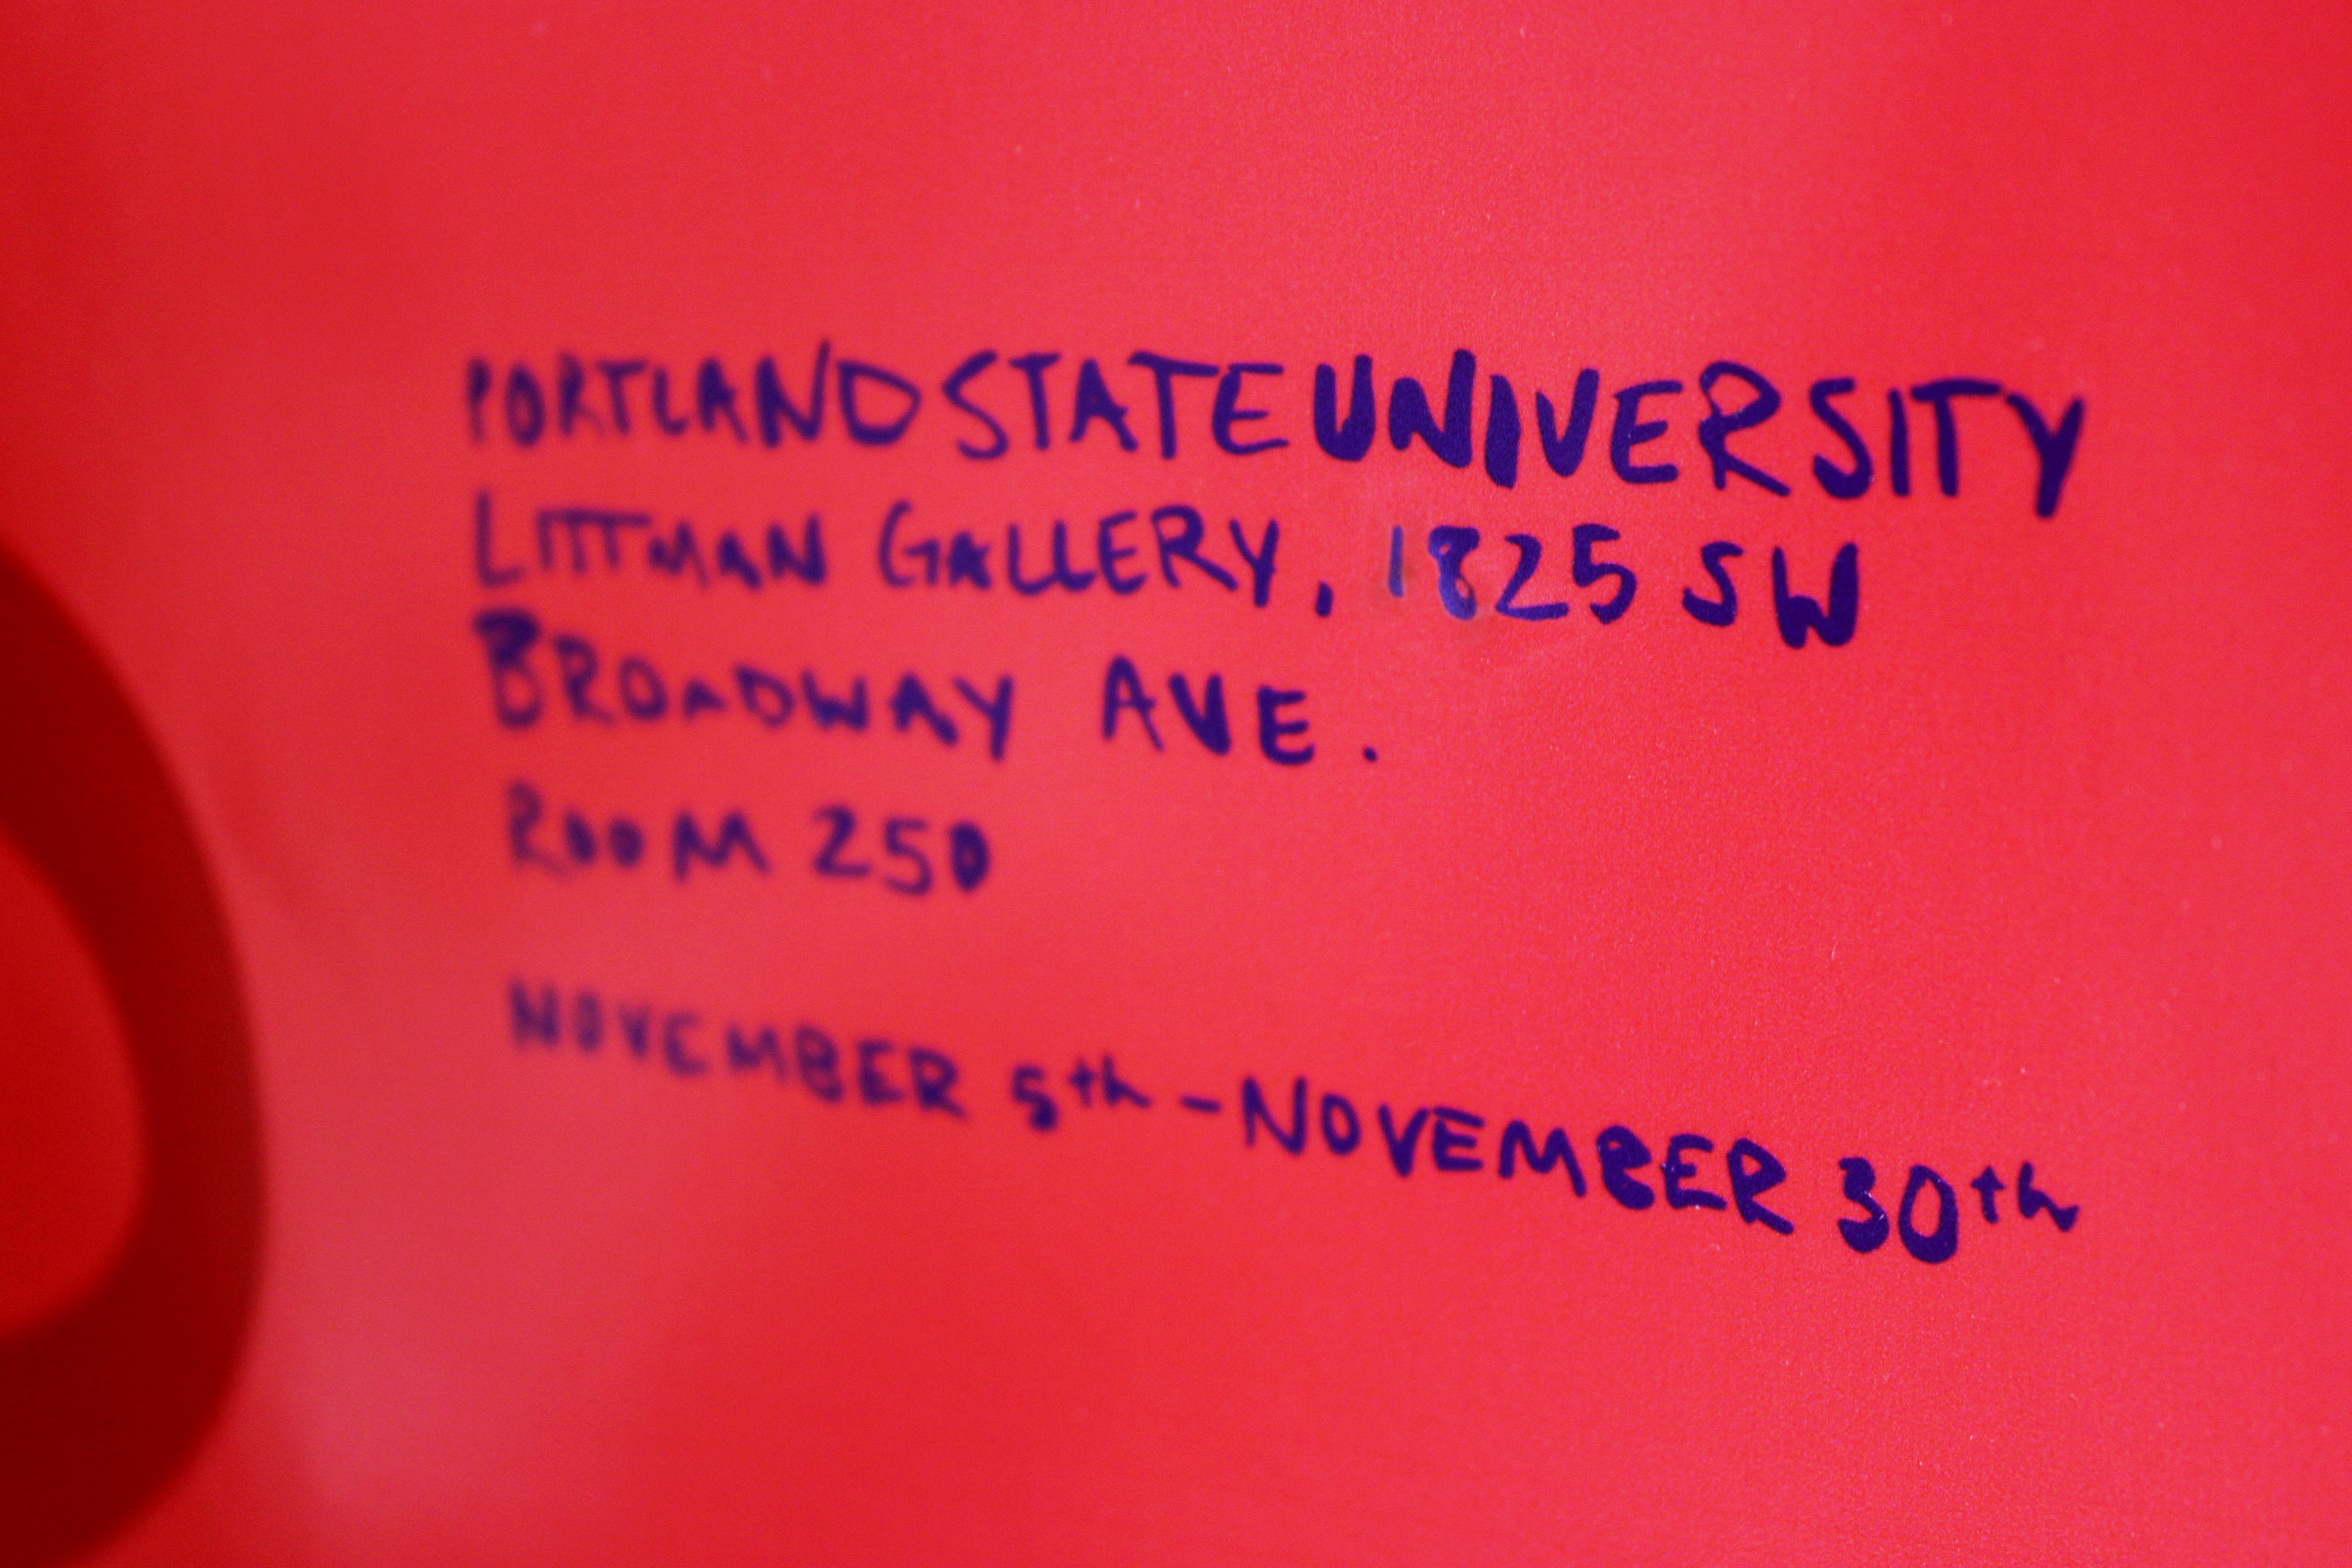 PORTLAND STATE UNIVERSITY
LITTMAN GALLERY, 1825 SW
BROADWAY AVE.
ROOM 250
NOVEMBER 5th - NOVEMBER 30th